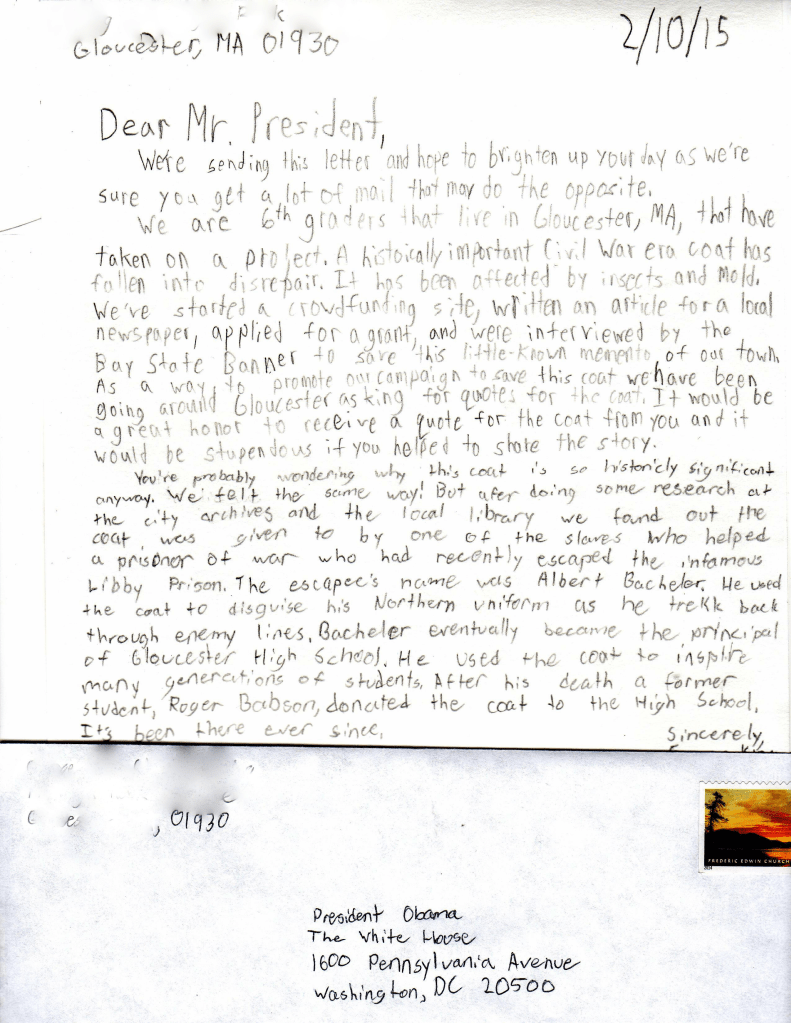 Gloucester, MA 01930
2/10/15
Dear Mr. President,
We're sending this letter and hope to brighten up your day as we're
sure you get a lot of mail that may do the opposite.
We are 6th graders that live in Gloucester, MA, that have
taken on a project. A histoically important Civil War era coat has
fallen into disrepair. It has been affected by insects and mold.
We've started a crowdfunding site, written an article for a local
newspaper, applied for a grant, and were interviewed by the
Bay State Banner to save this little-known memento of our town.
As a way to promote our campaign to save this coat we have been
going around Gloucester asking for quotes for the coat. It would be
a great honor to receive a quote for the coat from you and it
would be stupendous if you helped to share the story.
You're probably wondering why this coat is so historicly significant
anyway. We felt the same way! But afer doing some research at
the city archives and the local library we found out the
coat was given to by one of the slaves who helped
a prisonor of war who had recently escaped the infamous
Libby Prison. The escapee's name was Albert Bacheler. He used
the coat to disguise his Northern uniform as he trekk back
through enemy lines. Bacheler eventually became the principal
of Gloucester High School. He used the coat to inspire
many generations of students. After his death a former
student, Roger Babson, donated the coat to the High School.
It's been there ever since.
Sincerely,
, 01930
FREDERIC EDWIN CHURCH
President Obama
The White House
1600 Pennsylvania Avenue
Washington, DC 20500